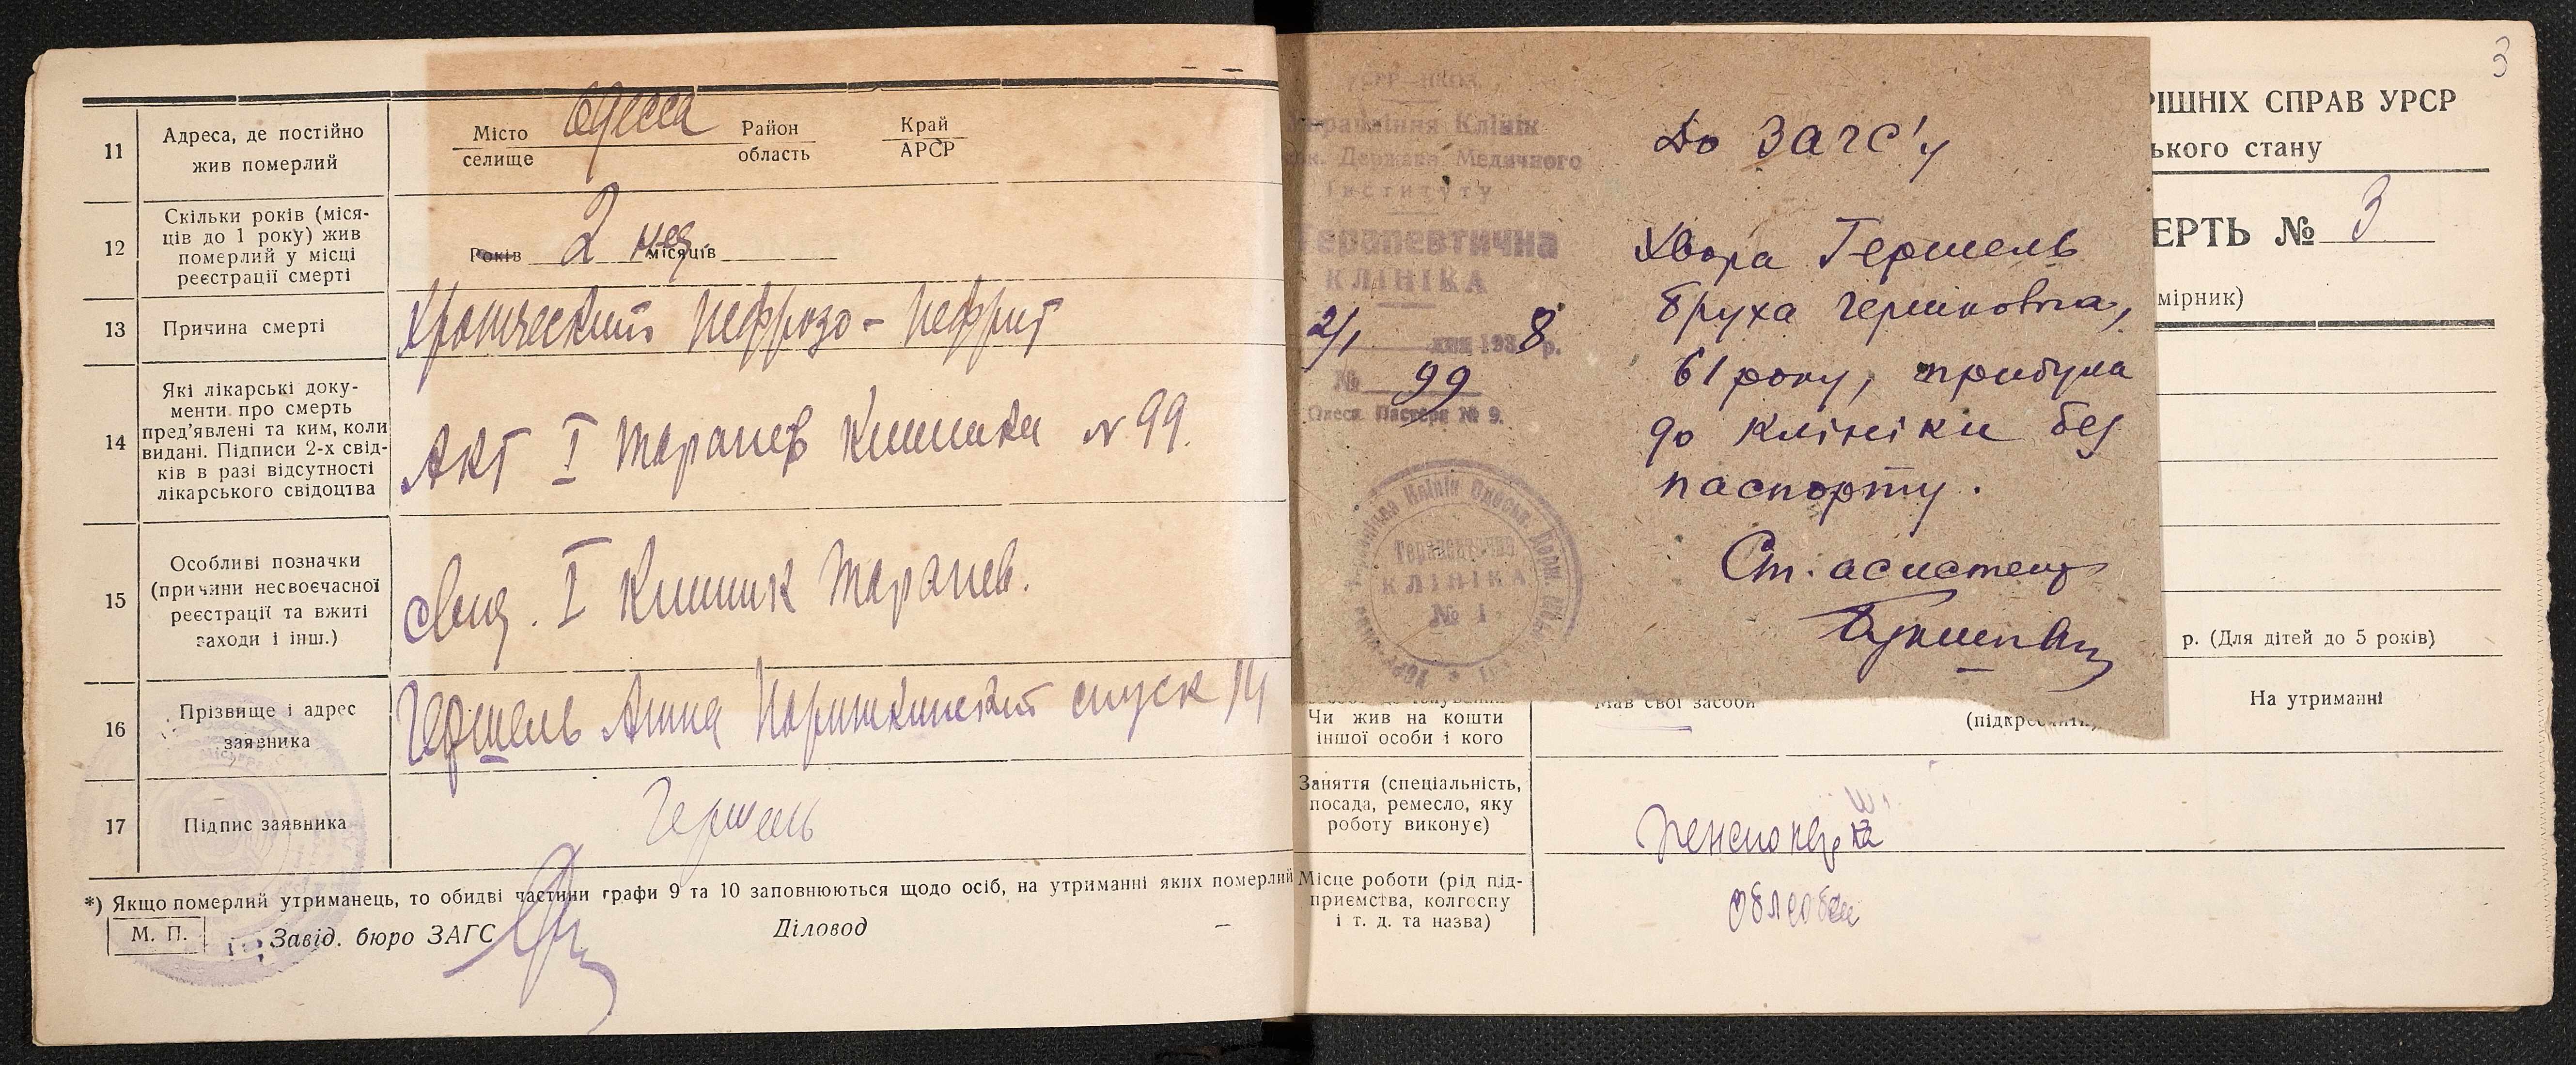 11
Адреса, де постійно
жив померлий
Місто
селище
Одесса
Район
область
Край
АРСР
12
Скільки років (міся-
ців до 1 року) жив
померлий у місці
реєстрації смерті
Років 2 мес. місяців
13
Причина смерті
Хронический Нефрозо-Нефрит
14
Які лікарські доку-
менти про смерть
пред'явлені та ким, коли
видані. Підписи 2-х свід-
ків в разі відсутності
лікарського свідоцтва
Акт I Терапев Клиники № 99.
15
Особливі позначки
(причини несвоєчасної
реєстрації та вжиті
заходи і інш.)
I Клиник Терапев.
16
Прізвище і адрес
заявника
Гершель Анна спуск 14
17
Підпис заявника
Гершель
*) Якщо померлий утриманець, то обидві частини графи 9 та 10 заповнюються щодо осіб, на утриманні яких померлий
М. П.
Завід. бюро ЗАГС
Діловод
3
Клінік
Державн. Медичного
Інституту
Терапевтична
КЛІНІКА
2/1 193 8 р.
№ 99
Одеса Пастера № 9.
Терапевтична
КЛІНІКА
№ 1
До ЗАГС'у
Хвора Гершель
Бруха Гершковна,
61 року, прибула
до клініки без
паспорту.
Ст. асистент
РІШНІХ СПРАВ УРСР
ького стану
ЕРТЬ № 3
мірник)
р. (Для дітей до 5 років)
Чи жив на кошти
іншої особи і кого
Мав свої засоби
(підкреслити)
На утриманні
Заняття (спеціальність,
посада, ремесло, яку
роботу виконує)
Місце роботи (рід під-
приємства, колгоспу
і т. д. та назва)